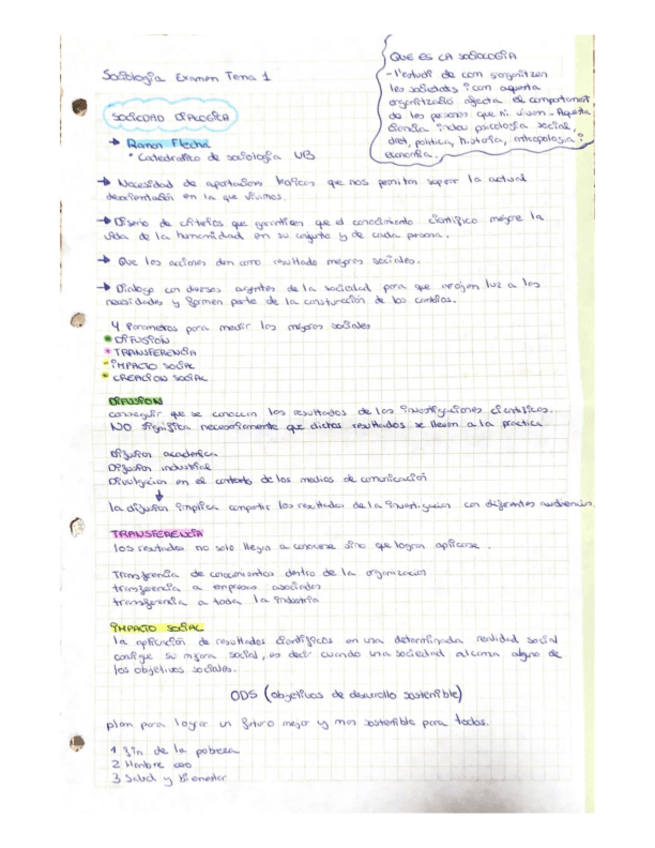 Sociología Examen Tema 1
QUE ES LA SOCIOLOGIA
- l'estudi de com s'organitzen
les societats i com aquesta
organització afecta el comportament
de les persones que hi viuen. Aquesta
ciencia inclou psicologia social,
dret, politica, historia, antropologia i
economia.
SOCIOLOGIA DIALOGICA
→ Ramon Flecha
• Catedratico de sociologia UB
→ Necesidad de aportaciones teoricas que nos permitan superar la actual
desorientación en la que vivimos.
→ Diseño de criterios que garanticen que el conocimiento cientifico mejore la
vida de la humanidad en su conjunto y de cada persona.
→ Que las acciones den como resultado mejoras sociales.
→ Dialogo con diversos agentes de la sociedad para que arrojen luz a las
necesidades y formen parte de la construcción de los cambios.
4 Parametros para medir las mejoras sociales
• DIFUSIÓN
• TRANSFERENCIA
• IMPACTO SOCIAL
• CREACION SOCIAL
DIFUSION
conseguir que se conozcan los resultados de las investigaciones cientificas.
NO significa necesariamente que dichos resultados se lleven a la practica
Difusion academica
Difusion industrial
Divulgacion en el contexto de los medios de comunicación
↓
la difusion implica compartir los resultados de la investigacion con diferentes audiencias.
TRANSFERENCIA
los resultados no solo llegan a conocerse sino que logran aplicarse.
Transferencia de conocimientos dentro de la organizacion
transferencia a empresas asociadas
transferencia a toda la industria
IMPACTO SOCIAL
la aplicación de resultados cientificos en una determinada realidad social
consigue su mejora social, es decir cuando una sociedad alcanza alguno de
los objetivos sociales.
ODS (objetivos de desarrollo sostenible)
plan para lograr un futuro mejor y mas sostenible para todos.
1 fin de la pobreza
2 Hambre cero
3 Salud y Bienestar